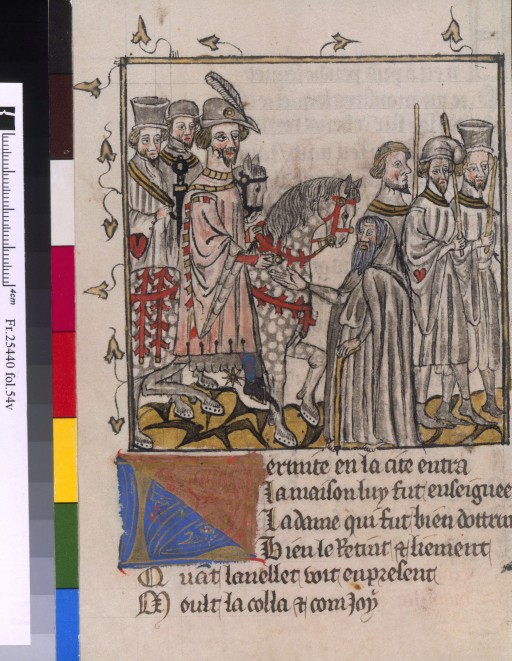 4cm
Fr.25440 fol.54v
ermite en la cite entra
La maison luy fut enseignee
La dame qui fut bien
Bien le Retint & liement
Quāt lanellet voit en present
Moult la colla & com Joÿ